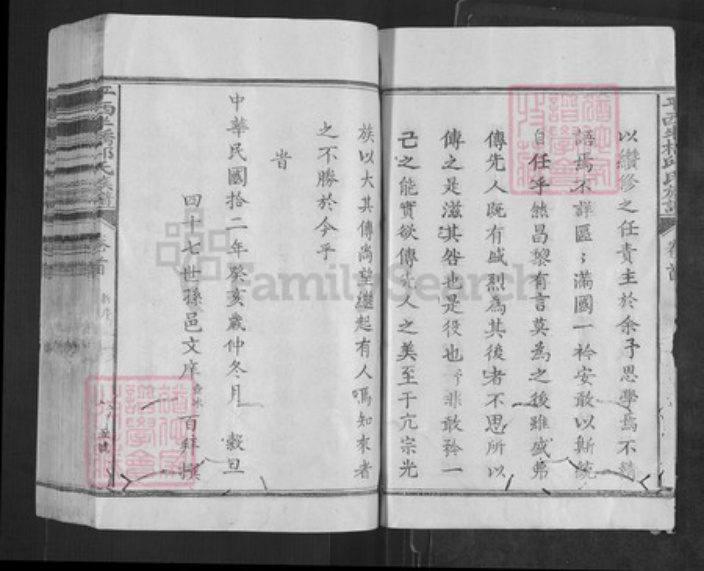 以纘修之任責主於余予思學焉不精
語焉不詳區〻滿國一衿安敢以斯統
自任乎然昌黎有言莫為之後雖盛弗
傳先人既有盛烈為其後者不思所以
傳之是滋其咎也是役也予非敢矜一
己之能實欲傳先人之美至于亢宗光
族以大其傳尚望繼起有人焉知來者
之不勝於今乎
旹
中華民國拾二年癸亥歲仲冬月 穀旦
四十七世孫邑文庠 百 撰
卷首
FamilySearch